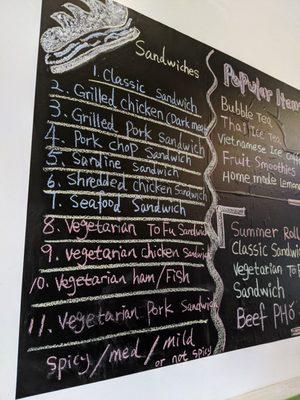 Sandwiches
1 Classic Sandwich
2 Grilled chicken (Dark meat
3 Grilled Pork Sandwich
4 Pork chop Sandwich
5 Sardine Sandwich
6 Shredded chicken Sandwich
7 Seafood Sandwich
8 Vegetarian ToFu Sandwich
9 vegetarian chicken Sandwich
10 Vegetarian ham/Fish
11 Vegetarian Pork Sandwich
spicy/med/mild
or not spicy
Popular Item
Bubble Tea
Thai Ice Tea
Vietnamese Ice
Fruit Smoothies
Home made Lemon
Summer Roll
Classic Sandwi
Vegetarian To
Sandwich
Beef PHỞ